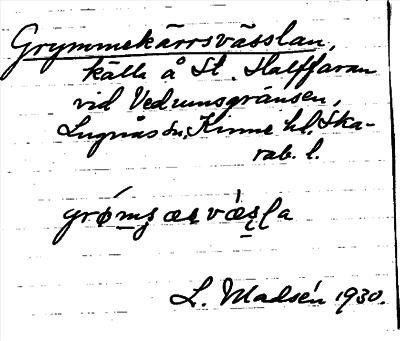 Grymmekärrsvässlan,
källa å St. Halffaran
vid Vedumsgränsen,
Lugnås sn, Kinne hd, Ska-
rab. l.
L. Madsén 1930.